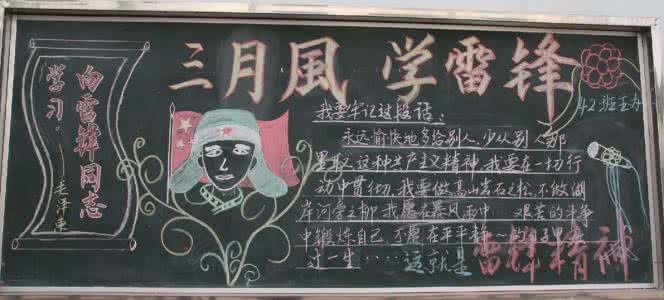 三月風 学雷锋
向雷锋同志
学习。
——毛泽东
42班主办
我要牢记这段话：
永远愉快地多给别人,少从别人那
里取,这种共产主义精神,我要在一切行
动中贯彻,我要做高山岩石之松,不做湖
岸河旁之柳,我愿在暴风雨中 艰苦的斗争
中锻炼自己,不愿在平平静
过一生……这就是雷锋精神